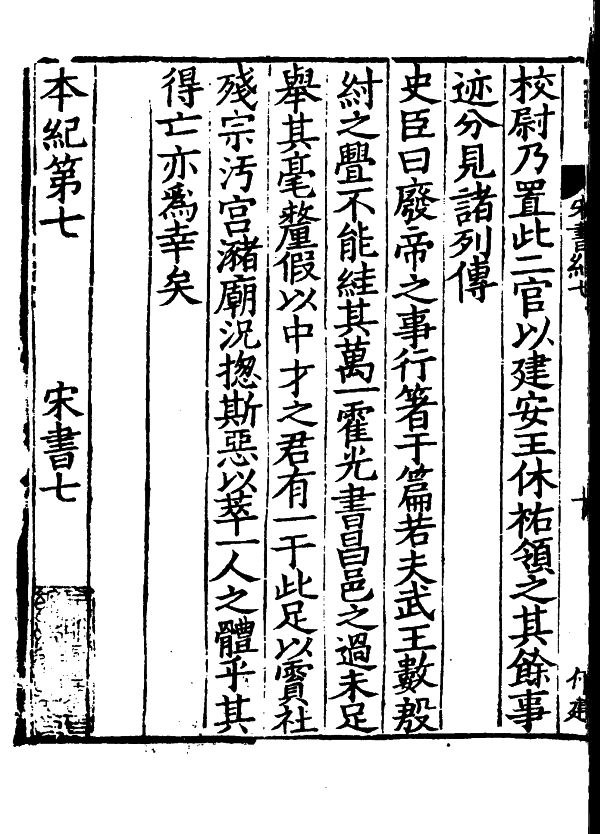 宋書紀七
十
校尉乃置此二官以建安王休祐領之其餘事
迹分見諸列傳
史臣曰廢帝之事行著于篇若夫武王數殷
紂之釁不能絓其萬一霍光書昌邑之過未足
舉其毫釐假以中才之君有一于此足以霣社
殘宗汚宫瀦廟況揔斯惡以萃一人之體乎其
得亡亦爲幸矣
本紀第七
宋書七